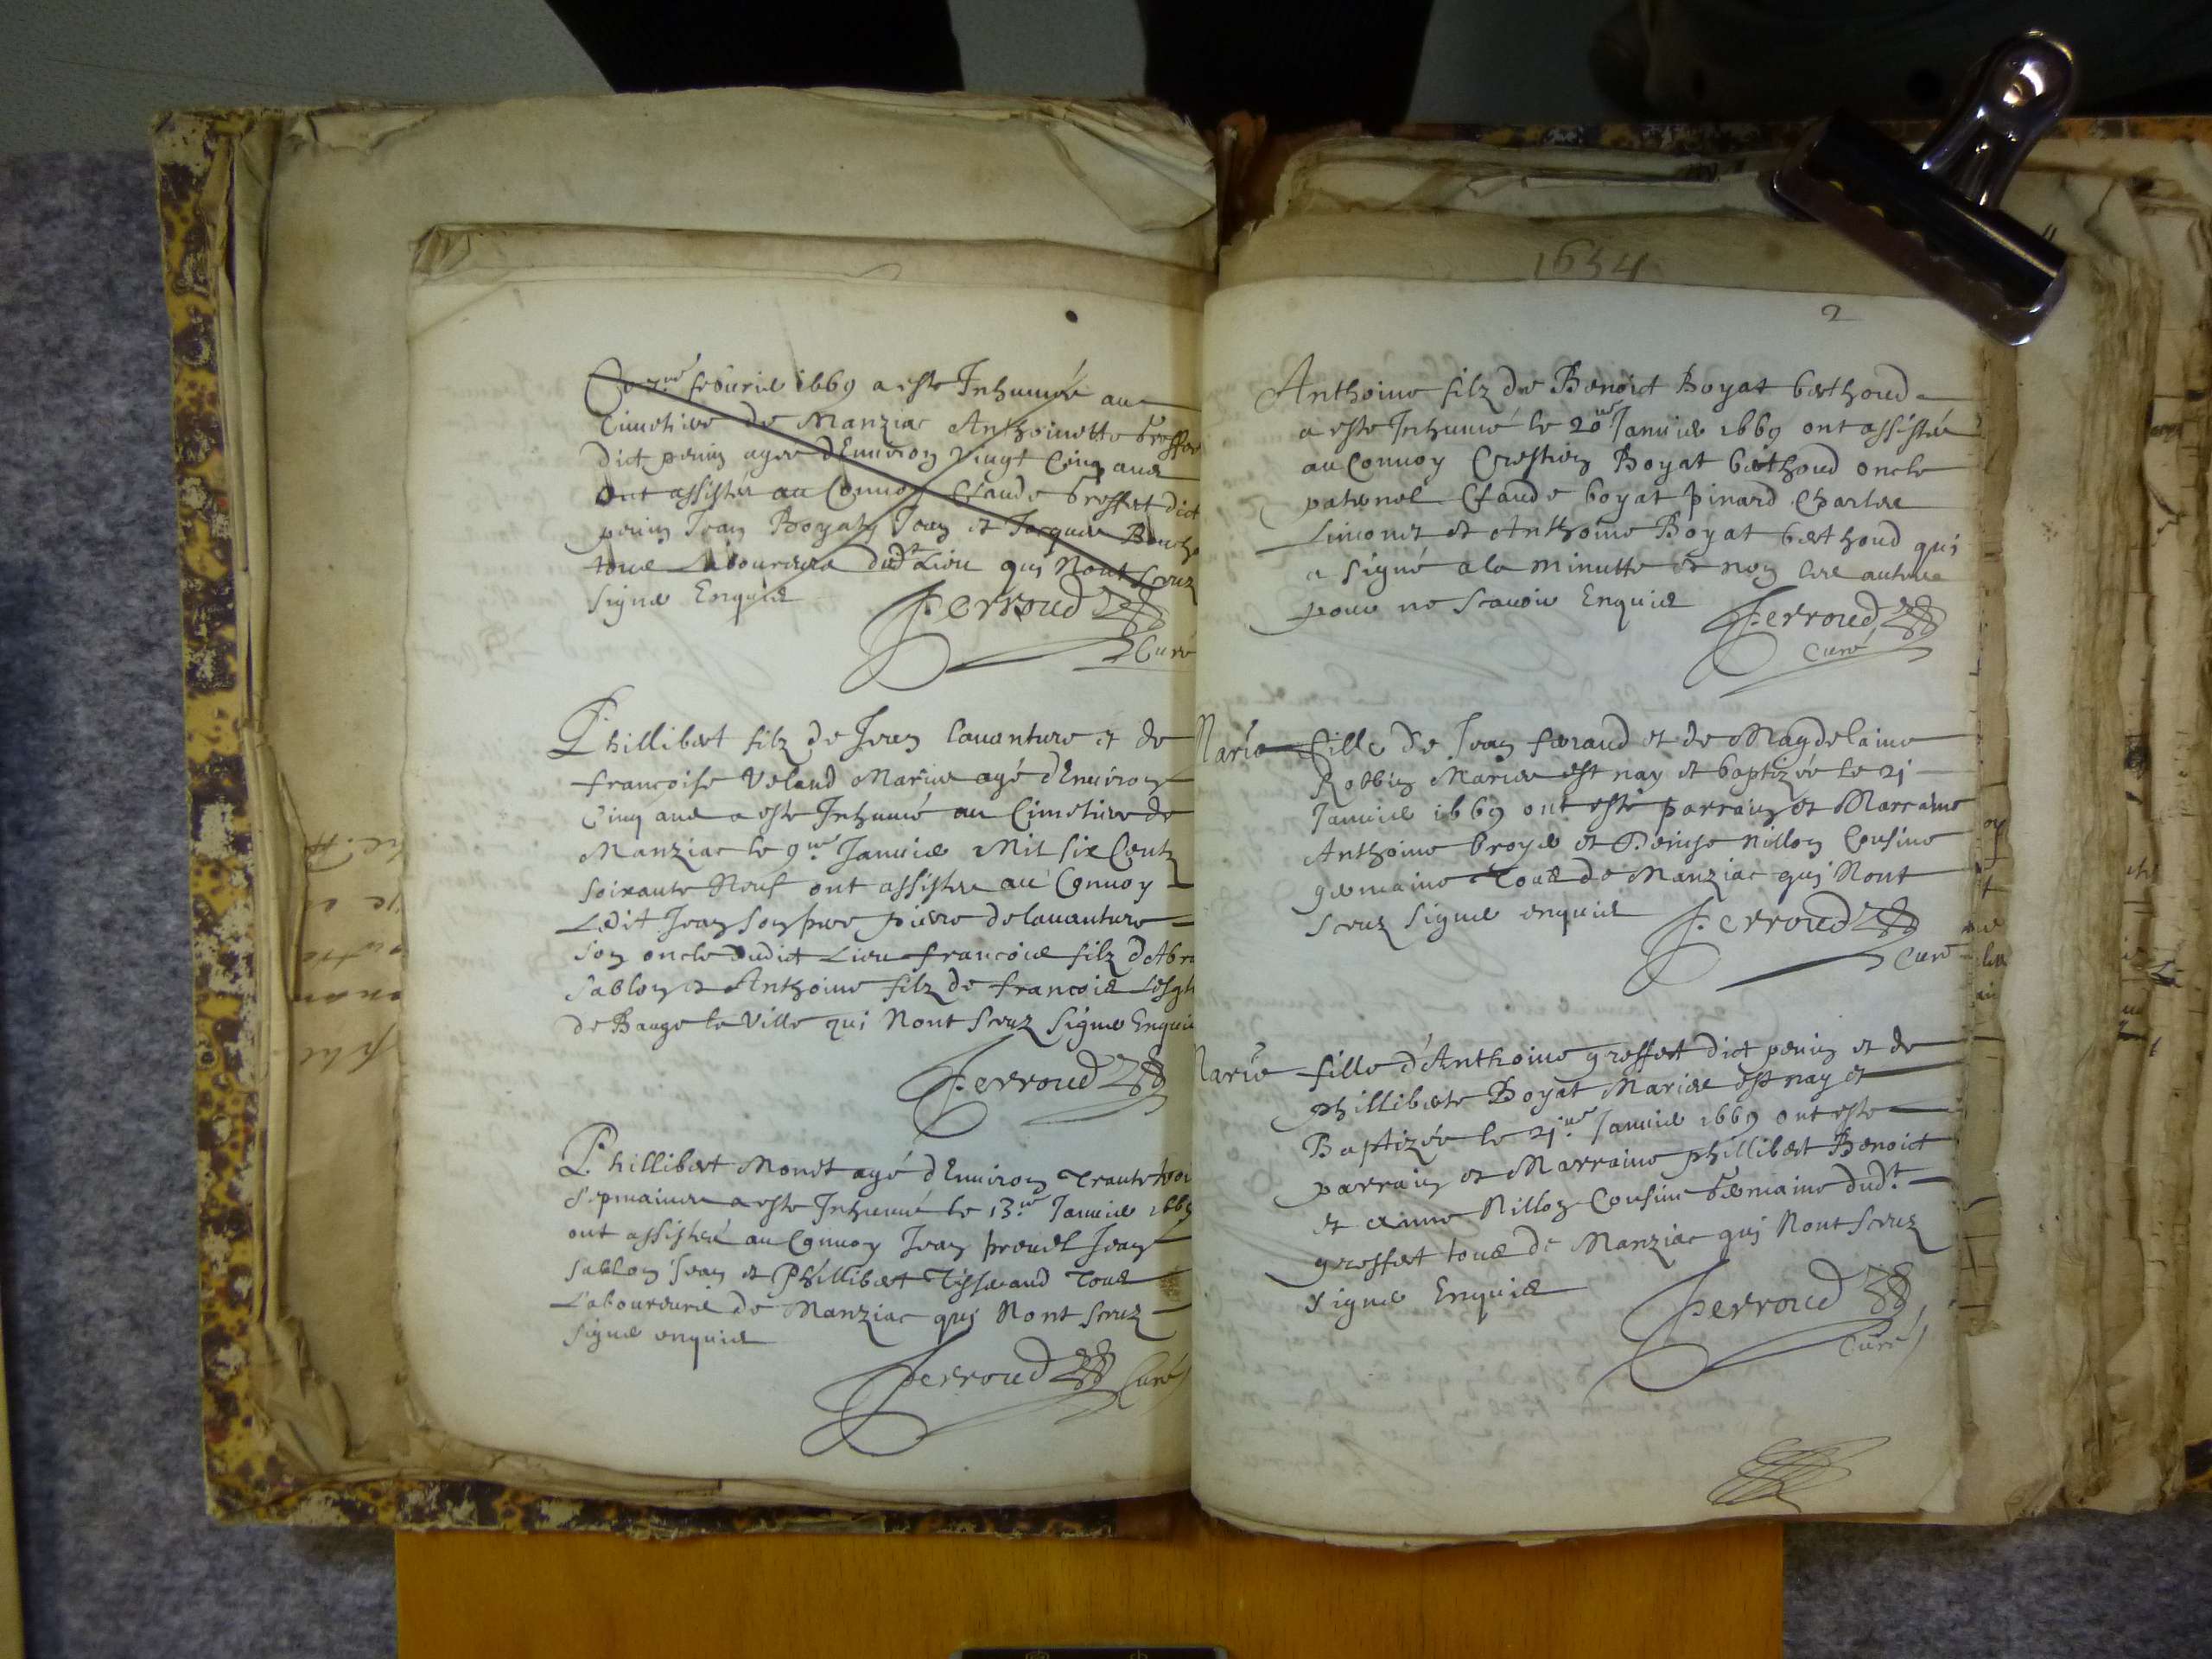 Ce 7me feburier 1669 a este Inhumée au
Cimetiere de Manziac Anthoinette Greffet
dict perrin agee d'Environ Vingt Cinq ans
Ont assistés au Convoy Claude Greffet dict
perrin Jean Boyat Jean et Jacques
tous Laboureurs dudt Lieu qui Nont sceuz
signer Enquis
Perroud
Curé
Phillibert filz de Jean lauanture et de
francoise Veland Mariés agé d'Enuiron
Cinq ans a este Inhumé au Cimetiere de
Manziac le 9me Januier Mil six Centz
soixante Neuf ont assistes au Conuoy
Ledit Jean son pere pierre de lauanture
son oncle dudict Lieu francois filz d'Abra
Sablon et Anthoine filz de francois
de Bauge la Ville qui Nont sceuz signer Enquis
Perroud
Phillibert Monet agé d'Enuiron Trante trois
sepmaines a este Inhumé le 13me Januier 1669
ont assistés au Conuoy Jean preuel Jean
Sablon Jean et Phillibert Tisserand Tous
Laboureurs de Manziac qui Nont sceuz
signer enquis
Perroud Curé
1634
2
Anthoine filz de Benoict Boyat berthoud
a este Inhumé le 20me Januier 1669 ont assistés
au Conuoy Crestien Boyat berthoud oncle
paternel Claude boyat pinard Charles
Limonet et Anthoine Boyat berthoud qui
a signé a la minutte et non les autres
pour ne scauoir Enquis
Perroud
Curé
Marie fille de Jean feraud et de Magdelaine
Robbin Mariés est nay et baptizée le 21
Januier 1669 ont esté parrain et Marraine
Anthoine broyer et Denise Nillon Cousine
germaine Tous de Manziac qui Nont
sceuz signer enquis
Perroud
Curé
Marie fille d'Anthoine greffet dict perrin et de
philliberte Boyat Mariés est nay et
Baptizée le 21me Januier 1669 ont este
parrain et Marraine phillibert Benoict
et anne Nillon Cousine Germaine dudt
greffet tous de Manziac qui Nont sceuz
signer Enquis
Perroud
Curé